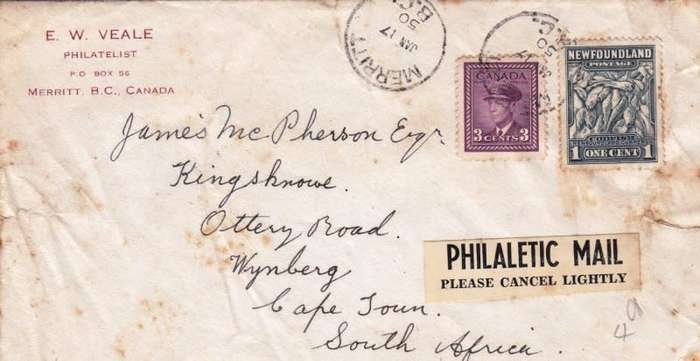 E. W. VEALE
PHILATELIST
P.O. BOX 56
MERRITT, B.C., CANADA
MERRITT
JAN 17
50
B.C.
CANADA
3 CENTS 3
NEWFOUNDLAND
POSTAGE
CODFISH
1 ONE CENT 1
James McPherson Esqr.
Kingsknowe.
Ottery Road.
Wynberg
Cape Town.
South Africa.
PHILALETIC MAIL
PLEASE CANCEL LIGHTLY